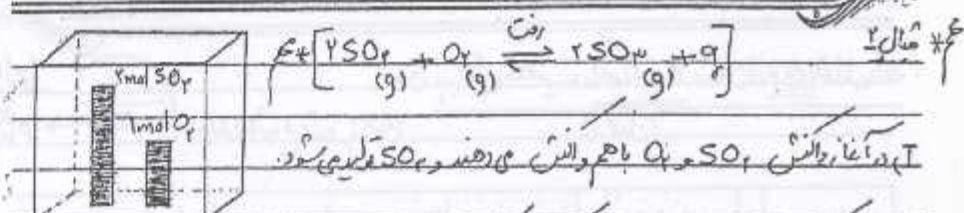 * مثال ۲
* [۲SO۲ (g) + O۲ (g) ⇌ ۲SO۳ (g) + q]
رفت
۲mol SO۲
۱mol O۲
I. در آغاز واکنش SO۲ و O۲ با هم واکنش می دهند و SO۳ تولید می شود.